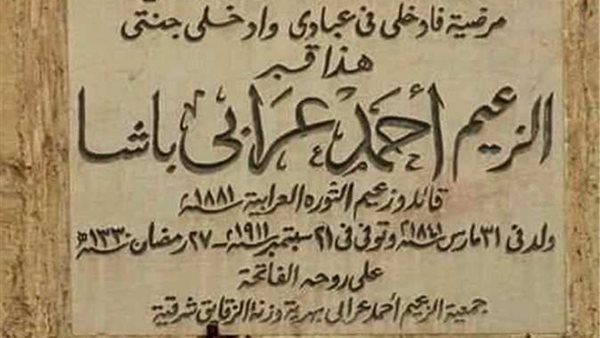 مرضية فادخلى فى عبادى وادخلى جنتى
هذا قبر
الزعيم أحمد عرابى باشا
قائد وزعيم الثوره العرابية ١٨٨١م
ولد فى ٣١ مارس ١٨٤١م وتوفى فى ٢١ سبتمبر ١٩١١م - ٢٧ رمضان ١٣٣٠ھ
على روحه الفاتحة
جمعية الزعيم أحمد عرابى بهرية رزنة الزقازيق شرقية